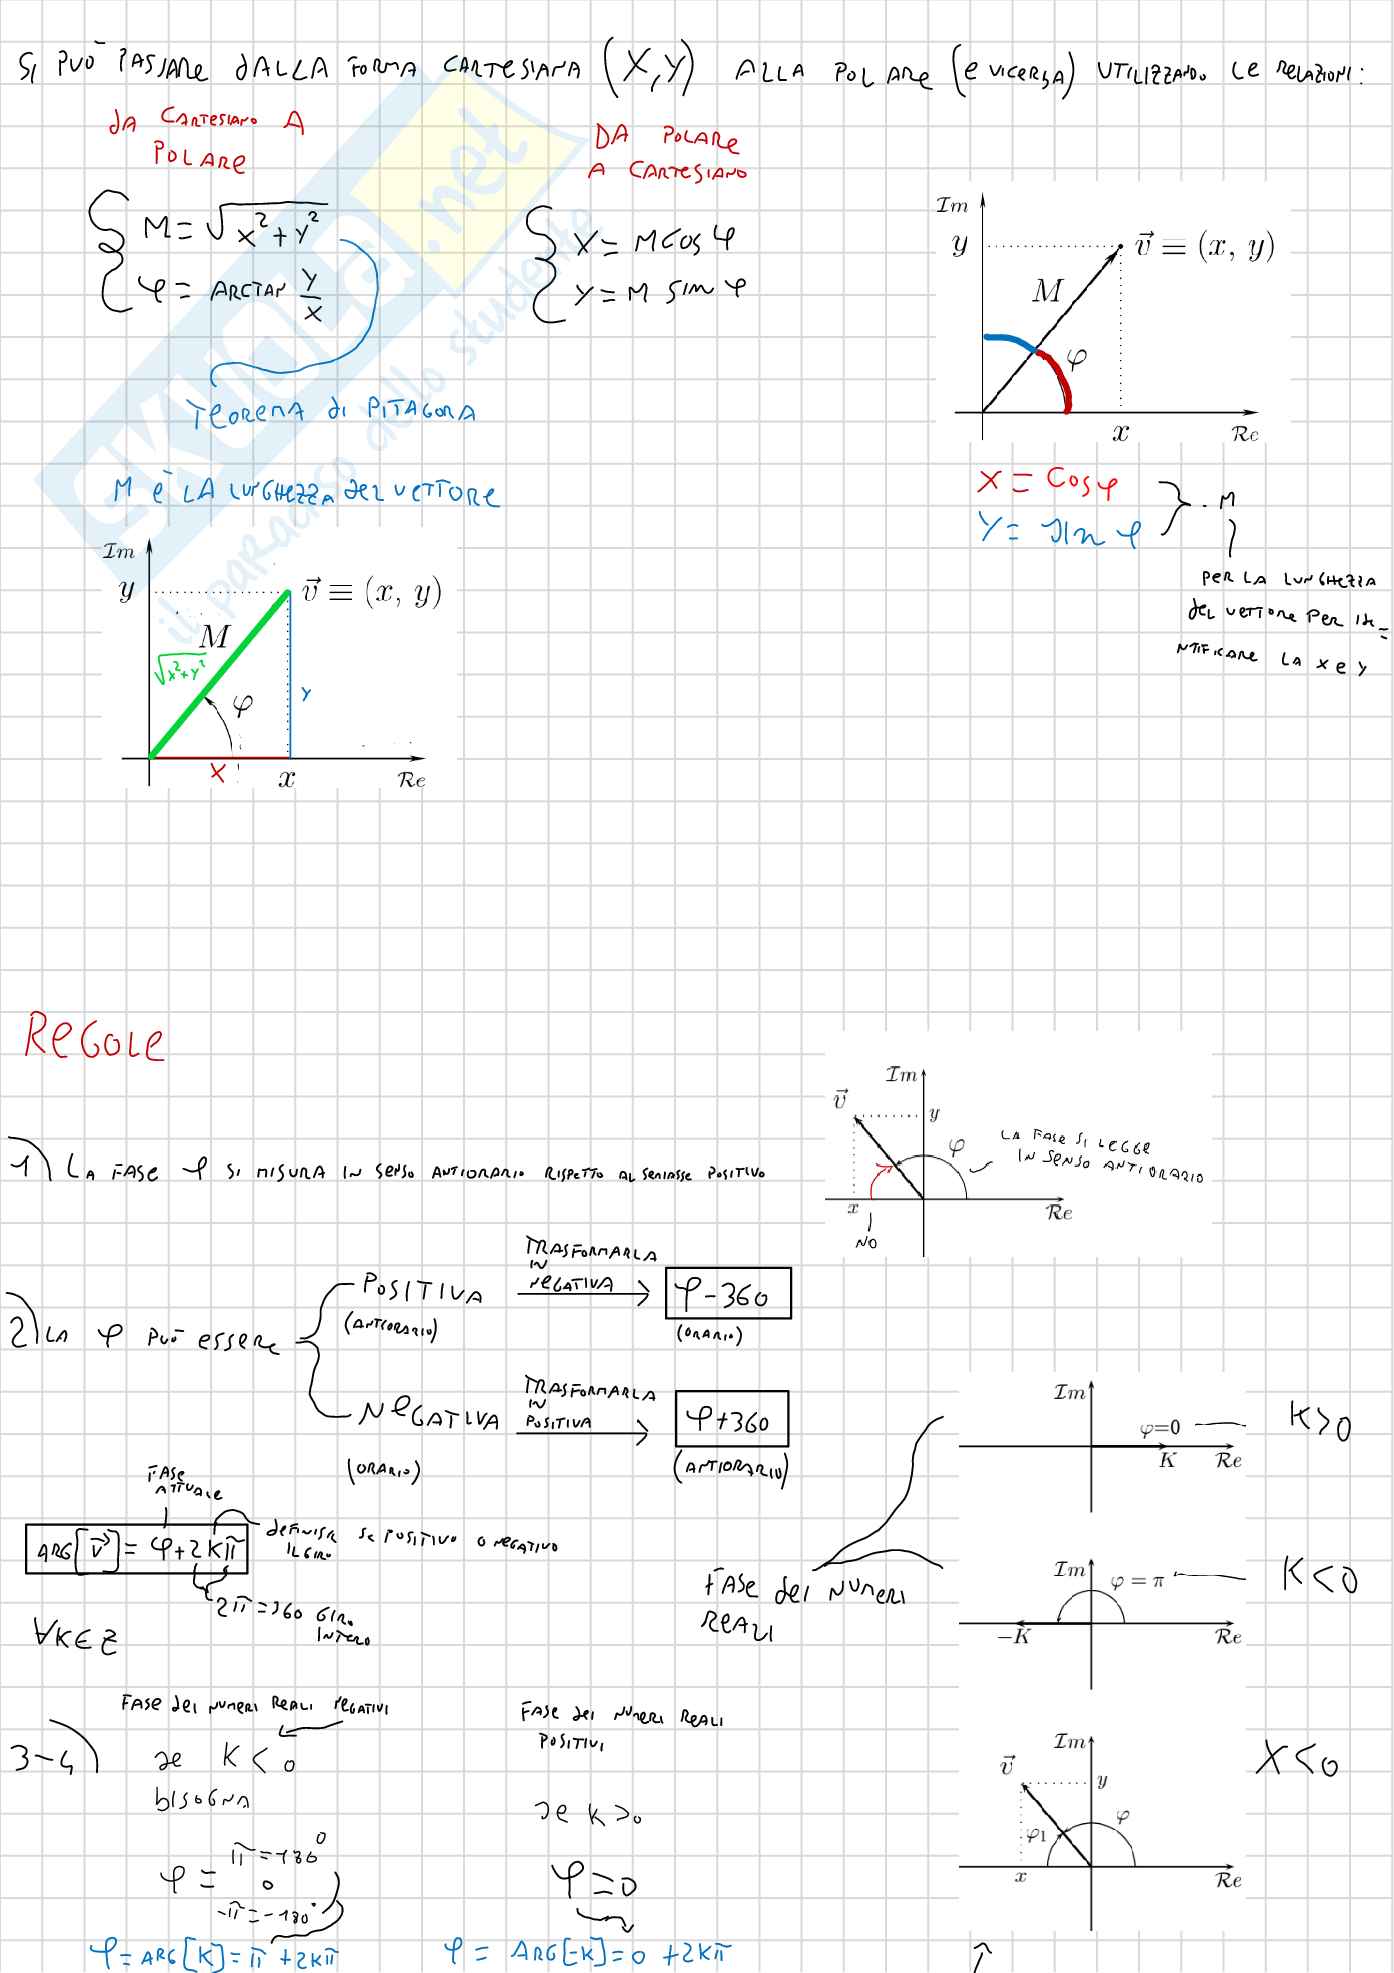 SI PUÒ PASSARE DALLA FORMA CARTESIANA (X,Y) ALLA POLARE (E VICERSA) UTILIZZANDO LE RELAZIONI:
DA CARTESIANO A
POLARE
M = √x²+y²
φ = ARCTAN y/x
TEOREMA DI PITAGORA
M È LA LUNGHEZZA DEL VETTORE
DA POLARE
A CARTESIANO
X = M COS φ
Y = M SIN φ
Im
y
v⃗ ≡ (x, y)
M
φ
x
Re
X = COS φ
Y = SIN φ
. M
PER LA LUNGHEZZA
DEL VETTORE PER IDE=
NTIFICARE LA X E Y
Im
y
v⃗ ≡ (x, y)
M
√x²+y²
φ
y
X
x
Re
SKUOLA.net
il paradiso dello studente
REGOLE
1) LA FASE φ SI MISURA IN SENSO ANTIORARIO RISPETTO AL SEMIASSE POSITIVO
Im
v⃗
y
φ
LA FASE SI LEGGE
IN SENSO ANTIORARIO
x
Re
NO
2) LA φ PUÒ ESSERE
POSITIVA
(ANTIORARIO)
TRASFORMARLA
IN
NEGATIVA
φ-360
(ORARIO)
NEGATIVA
(ORARIO)
TRASFORMARLA
IN
POSITIVA
φ+360
(ANTIORARIO)
FASE
ATTUALE
ARG[v⃗] = φ+2Kπ
DEFINISCE SE POSITIVO O NEGATIVO
IL GIRO
2π=360 GIRO
INTERO
∀K∈Z
FASE DEI NUMERI
REALI
Im
φ=0
K
Re
K>0
Im
φ = π
-K
Re
K<0
3-4)
FASE DEI NUMERI REALI NEGATIVI
SE K < 0
BISOGNA
φ =
π = 180°
0
-π = -180°
φ = ARG[K] = π + 2Kπ
FASE DEI NUMERI REALI
POSITIVI
SE K > 0
φ = 0
φ = ARG[-K] = 0 + 2Kπ
Im
v⃗
y
φ1
φ
x
Re
X<0